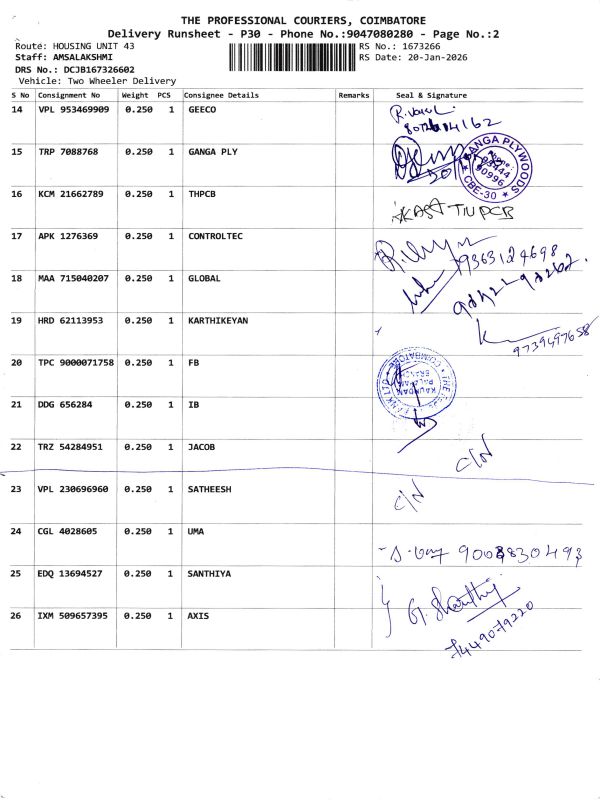 THE PROFESSIONAL COURIERS, COIMBATORE
Delivery Runsheet - P30 - Phone No.:9047080280 - Page No.:2
Route: HOUSING UNIT 43
RS No.: 1673266
Staff: AMSALAKSHMI
RS Date: 20-Jan-2026
DRS No.: DCJB167326602
Vehicle: Two Wheeler Delivery
S No Consignment No Weight PCS Consignee Details Remarks Seal & Signature
14 VPL 953469909 0.250 1 GEECO
15 TRP 7088768 0.250 1 GANGA PLY
GANGA PLYWOODS
Phone:
93444
90996
CBE-30
16 KCM 21662789 0.250 1 THPCB
TNPCB
17 APK 1276369 0.250 1 CONTROLTEC
79363124698
18 MAA 715040207 0.250 1 GLOBAL
19 HRD 62113953 0.250 1 KARTHIKEYAN
9739497658
20 TPC 9000071758 0.250 1 FB
COIMBATORE
21 DDG 656284 0.250 1 IB
22 TRZ 54284951 0.250 1 JACOB
C/N
23 VPL 230696960 0.250 1 SATHEESH
C/N
24 CGL 4028605 0.250 1 UMA
25 EDQ 13694527 0.250 1 SANTHIYA
26 IXM 509657395 0.250 1 AXIS
7449079220